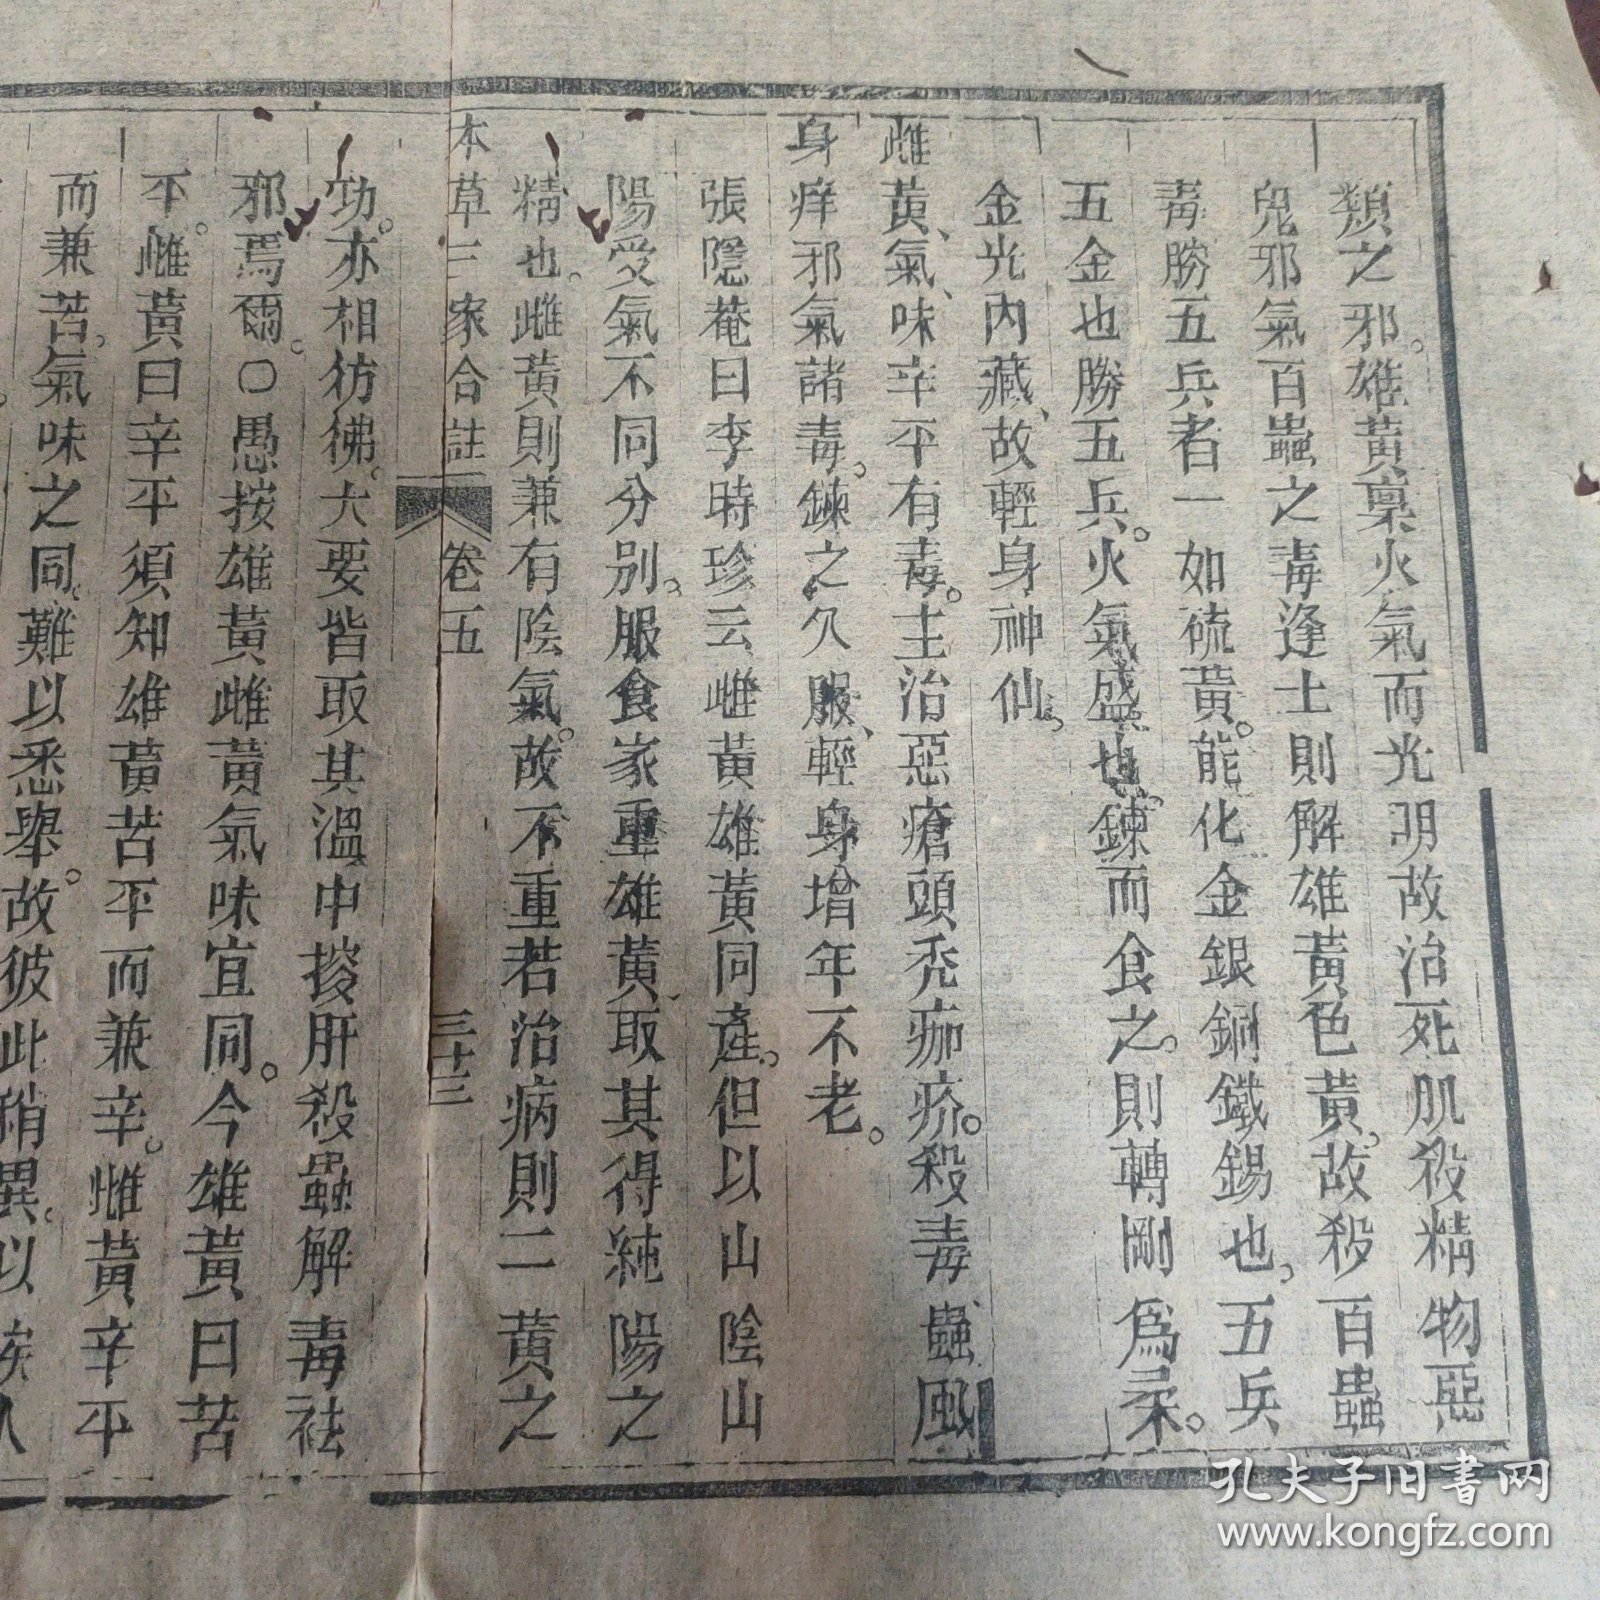 類之邪。雄黃稟火氣而光明故治死肌殺精物惡
鬼邪氣百蟲之毒逢土則解雄黃色黃。故殺百蟲
毒勝五兵者一如硫黃。能化金銀銅鐵錫也。五兵
五金也勝五兵。火氣盛也。鍊而食之。則轉剛爲柔。
金光內藏、故輕身神仙。
雌黃、氣味辛平有毒。主治惡瘡頭禿痂疥。殺毒蟲風
身痒邪氣諸毒。鍊之久服、輕身增年不老。
張隱菴曰李時珍云雌黃雄黃同產。但以山陰山
陽受氣不同分別。服食家重雄黃、取其得純陽之
精也。雌黃則兼有陰氣。故不重若治病則二黃之
本草三家合註 卷五 三十三
功。亦相彷彿。大要皆取其溫中搜肝殺蟲解毒祛
邪焉爾。〇愚按雄黃雌黃氣味宜同。今雄黃曰苦
平。雌黃曰辛平須知雄黃苦平而兼辛。雌黃辛平
而兼苦。氣味之同。難以悉舉。故彼此稍異。以俟人
孔夫子旧书网
www.kongfz.com